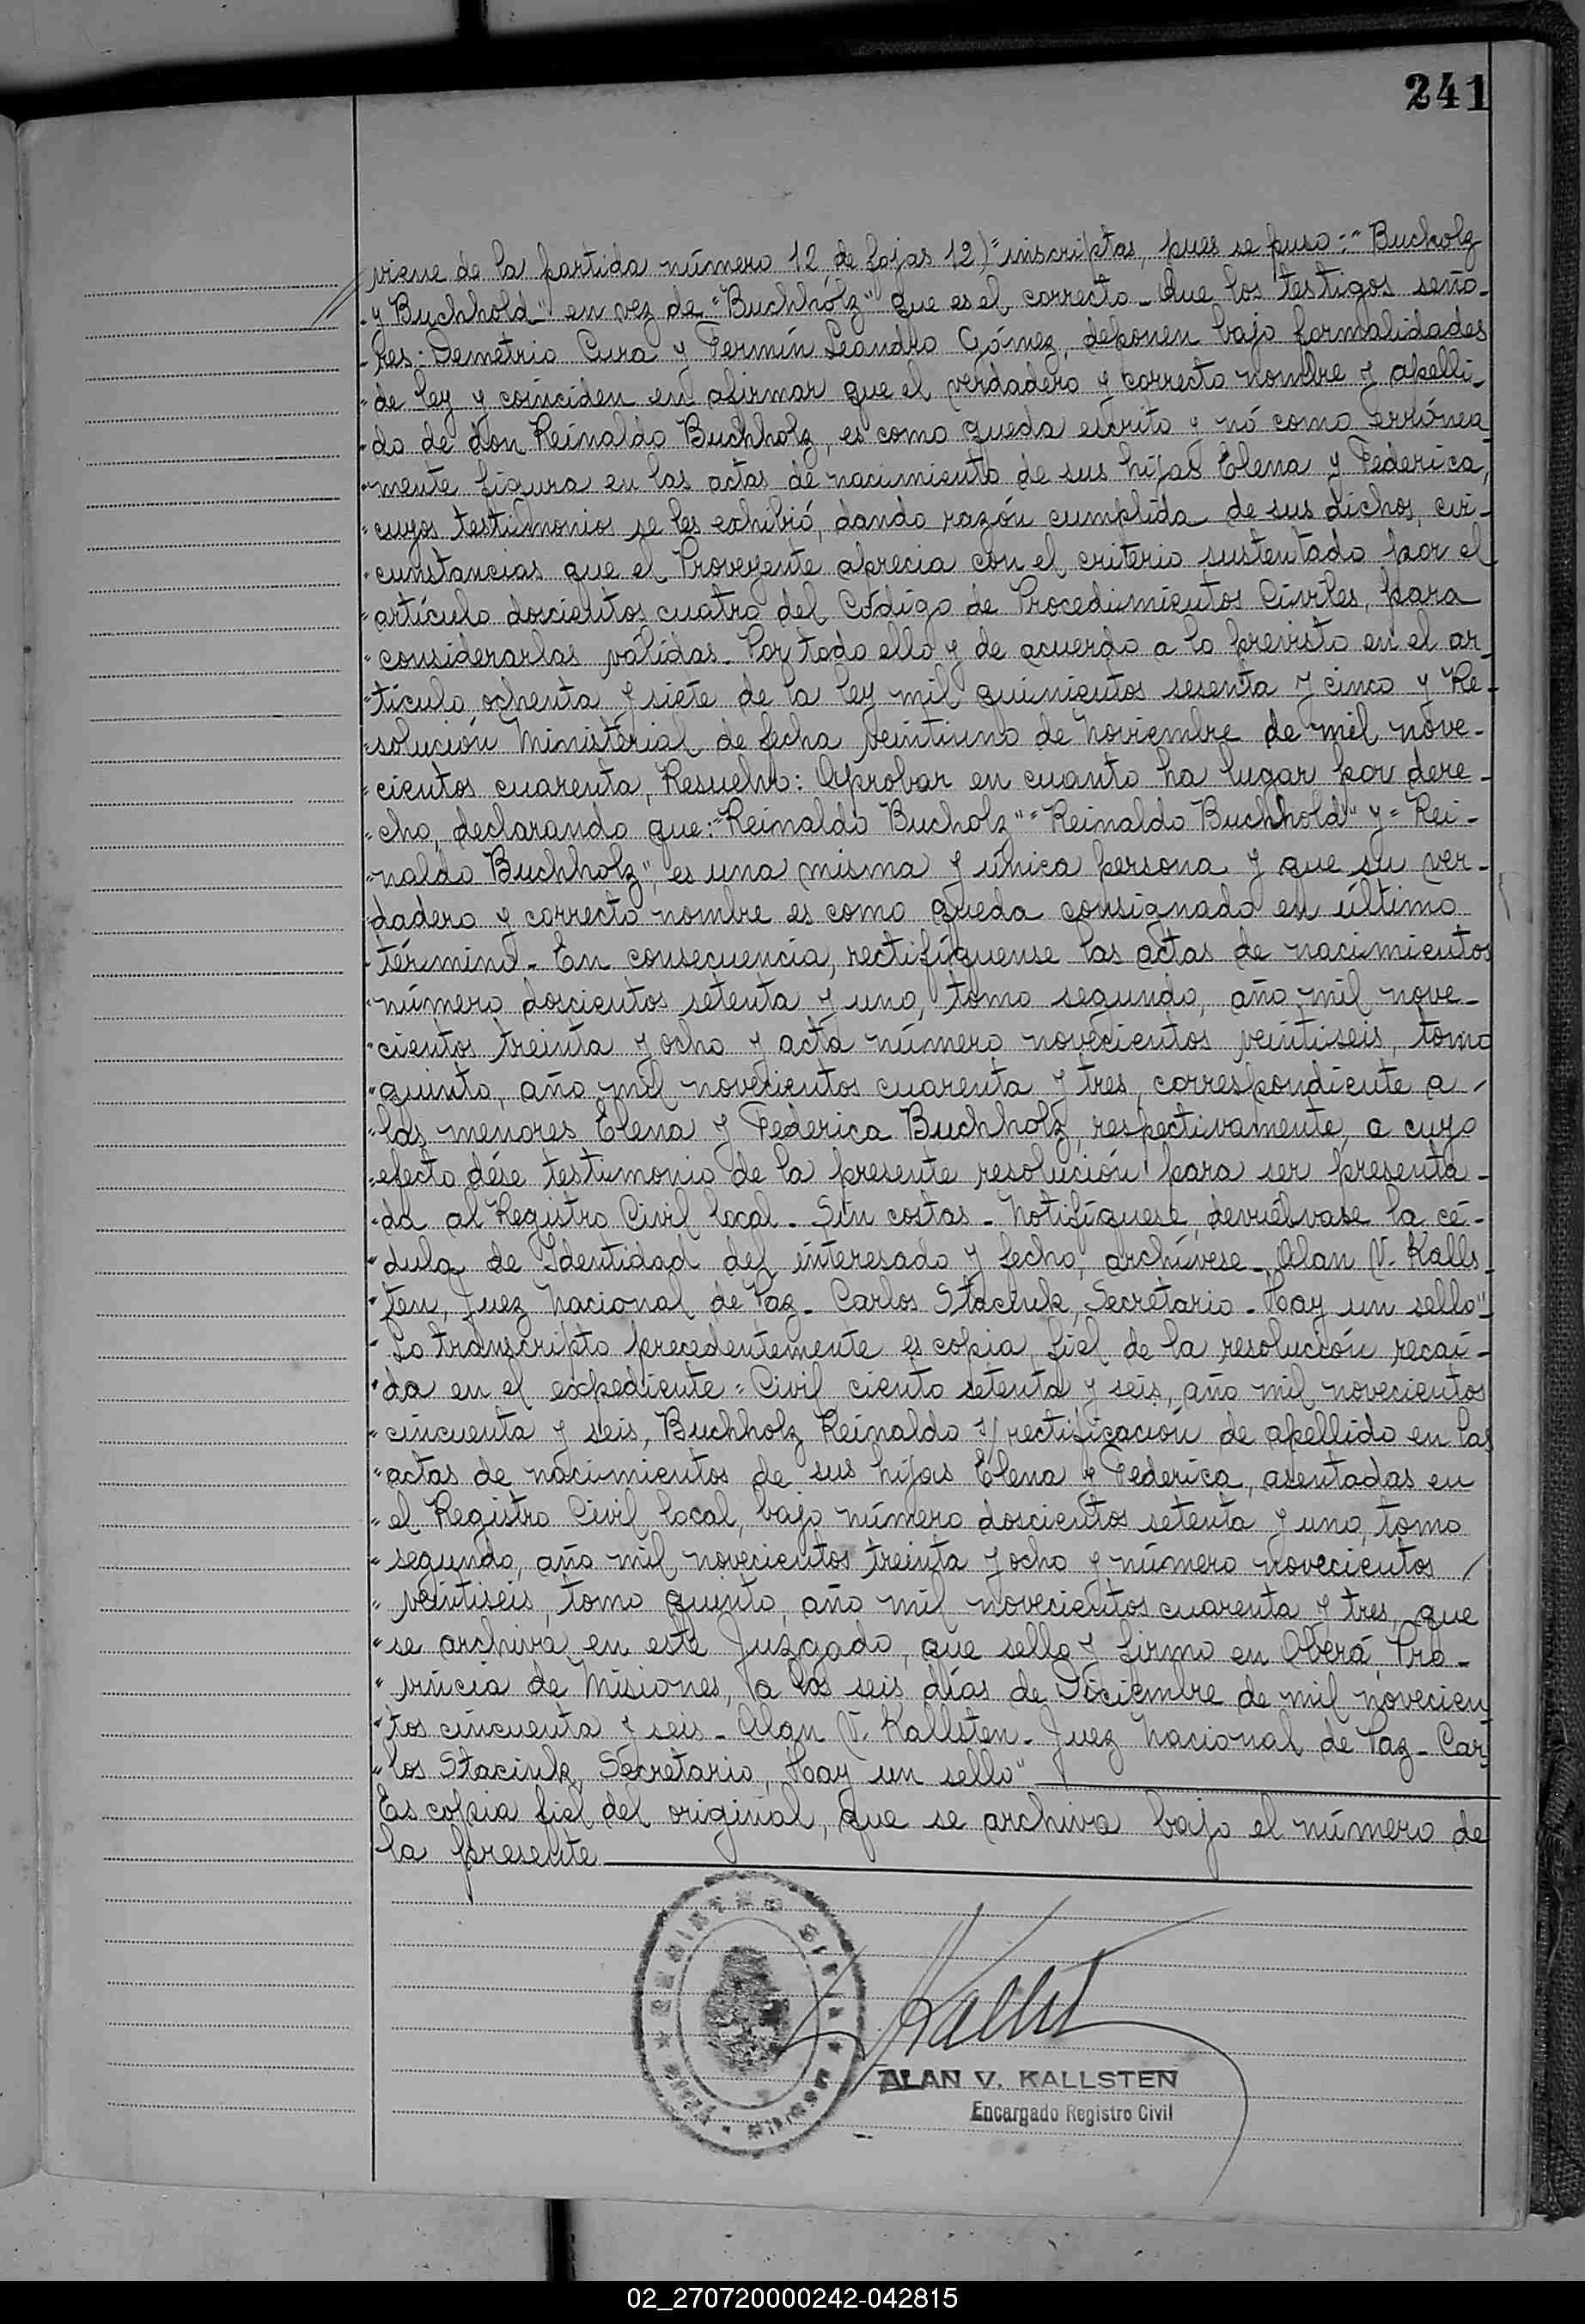 241
viene de la partida número 12, de fojas 12)" inscriptas, pues se puso: "Bucholz
"y Buchhold" en vez de "Buchhólz" que es el correcto_ Que los testigos seño-
"res: Demetrio Cura y Fermín Leandro Gómez, deponen bajo formalidades
"de ley y coinciden en afirmar que el verdadero y correcto nombre y apelli-
"do de don Reinaldo Buchholz, es como queda escrito y nó como errónea
"mente figura en las actas de nacimiento de sus hijas Elena y Federica,
"cuyos testimonios se les exhibió, dando razón cumplida de sus dichos, cir-
"cunstancias que el Proveyente aprecia con el criterio sustentado por el
"artículo doscientos cuatro del Código de Procedimientos Civiles, para
"considerarlas válidas_ Por todo ello y de acuerdo a lo previsto en el ar-
"tículo ochenta y siete de la ley mil quinientos sesenta y cinco y Re-
"solución Ministerial de fecha veintiuno de Noviembre de mil nove-
"cientos cuarenta, Resuelvo: Aprobar en cuanto ha lugar por dere-
"cho, declarando que: "Reinaldo Bucholz" "Reinaldo Buchhold" y "Rei-
"naldo Buchholz", es una misma y única persona y que su ver-
"dadero y correcto nombre es como queda consignado en último
"término_ En consecuencia, rectifíquense las actas de nacimientos
"número doscientos setenta y uno, tomo segundo, año mil nove-
"cientos treinta y ocho y acta número novecientos veintiseis, tomo
"quinto, año mil novecientos cuarenta y tres, correspondiente a /
"las menores Elena y Federica Buchholz, respectivamente, a cuyo
"efecto dése testimonio de la presente resolución para ser presenta-
"da al Registro Civil local_ Sin costas_ Notifíquese, devuélvase la cé-
"dula de Identidad del interesado y fecho, archívese_ Alan V. Kalls-
"ten, Juez Nacional de Paz_ Carlos Staciuk, Secretario_ Hay un sello"
"Lo transcripto precedentemente es copia fiel de la resolución recaí-
"da en el expediente "Civil ciento setenta y seis, año mil novecientos
"cincuenta y seis, Buchholz Reinaldo s/ rectificación de apellido en las
"actas de nacimientos de sus hijas Elena y Federica, asentadas en
"el Registro Civil local, bajo número doscientos setenta y uno, tomo
"segundo, año mil novecientos treinta y ocho y número novecientos /
"veintiseis, tomo quinto, año mil novecientos cuarenta y tres, que
"se archiva en este Juzgado, que sello y firmo en Oberá, Pro-
"vincia de Misiones, a los seis días de Diciembre de mil novecien
"tos cincuenta y seis_ Alan V. Kallsten_ Juez Nacional de Paz_ Car-
"los Staciuk, Secretario, Hay un sello"
Es copia fiel del original, que se archiva bajo el número de
la presente
ALAN V. KALLSTEN
Encargado Registro Civil
02_270720000242-042815